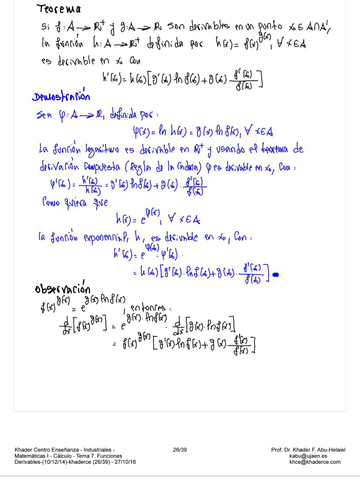 Teorema
Si f: A → ℝ₊* y g: A → ℝ son derivables en un punto x₀ ∈ A∩A',
la función h: A → ℝ₊* definida por h(x) = f(x)^g(x), ∀ x∈A
es derivable en x₀ con
h'(x₀) = h(x₀)[g'(x₀) ln f(x₀) + g(x₀) · f'(x₀)/f(x₀)]
Demostración
Sea φ: A → ℝ, definida por:
φ(x) = ln h(x) = g(x) ln f(x), ∀ x∈A
La función logaritmo es derivable en ℝ₊* y usando el teorema de
derivación compuesta (Regla de la cadena) φ es derivable en x₀, con:
φ'(x₀) = h'(x₀)/h(x₀) = g'(x₀) ln f(x₀) + g(x₀) · f'(x₀)/f(x₀)
Como quiera que
h(x) = e^φ(x), ∀ x∈A
la función exponencial, h, es derivable en x₀, con:
h'(x₀) = e^φ(x₀) · φ'(x₀)
= h(x₀)[g'(x₀) · ln f(x₀) + g(x₀) · f'(x₀)/f(x₀)]
Observación
f(x)^g(x) = e^g(x) ln f(x), entonces:
d/dx [f(x)^g(x)] = e^g(x) · ln f(x) · d/dx [g(x) · ln f(x)]
= f(x)^g(x) [g'(x) ln f(x) + g(x) · f'(x)/f(x)]
Khader Centro Enseñanza - Industriales -
Matemáticas I - Cálculo - Tema 7. Funciones
Derivables-(10/12/14)-khaderce (26/39) - 27/10/16
26/39
Prof. Dr. Khader F. Abu-Helaiel
kabu@ujaen.es
khce@khaderce.com